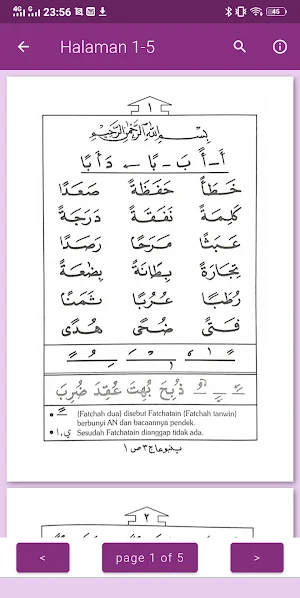 4G G 23:56 45
Halaman 1-5
١
بِسْمِ اللهِ الرَّحْمٰنِ الرَّحِيْمِ
أَ-أً بَ - بًا ← دَأَبًا
خَطَأً حَفَظَةً صَعَدًا
كَلِمَةً نَفَقَةً دَرَجَةً
عَبَثًا مَرَحًا رَصَدًا
تِجَارَةً بِطَانَةً بِضٰعَةً
رُطَبًا عُرُبًا ثَمَنًا
فَتًى ضُحًى هُدًى
ذُبِحَ بُهِتَ عُقِدَ ضُرِبَ
(Fatchah dua) disebut Fatchatain (Fatchah tanwin)
berbunyi AN dan bacaannya pendek.
ا، ي Sesudah Fatchatain dianggap tidak ada.
٢
< page 1 of 5 >